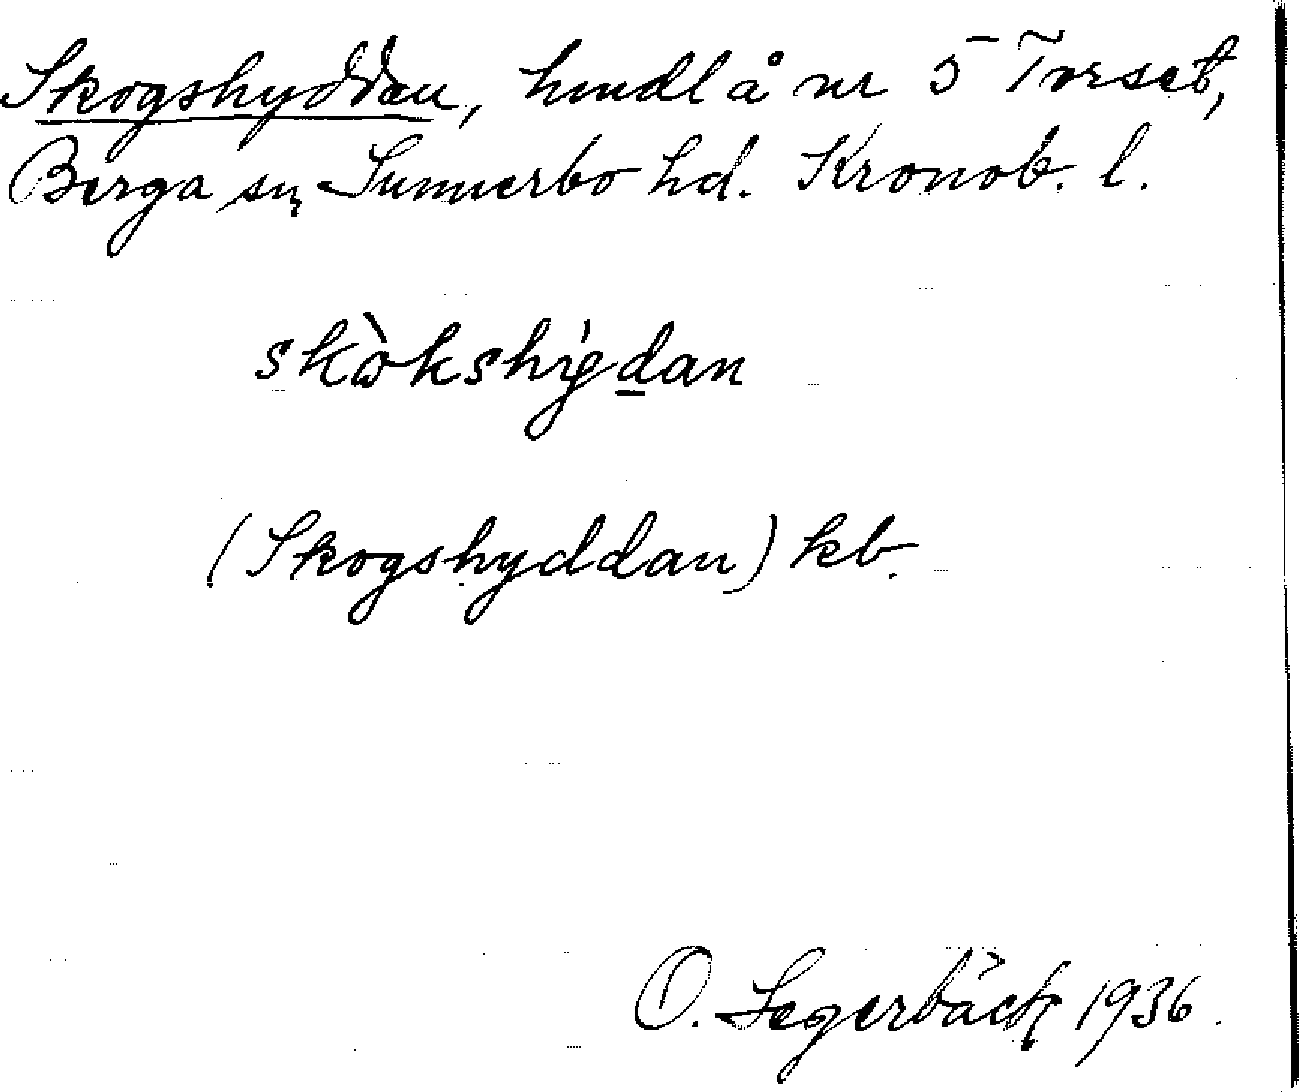 Skogshyddan, hmdl å nr 5 Torset,
Berga sn, Sunnerbo hd. Kronob. l.
skòkshy̍dan
(Skogshyddan) kb.
O. Segerbäck 1936.